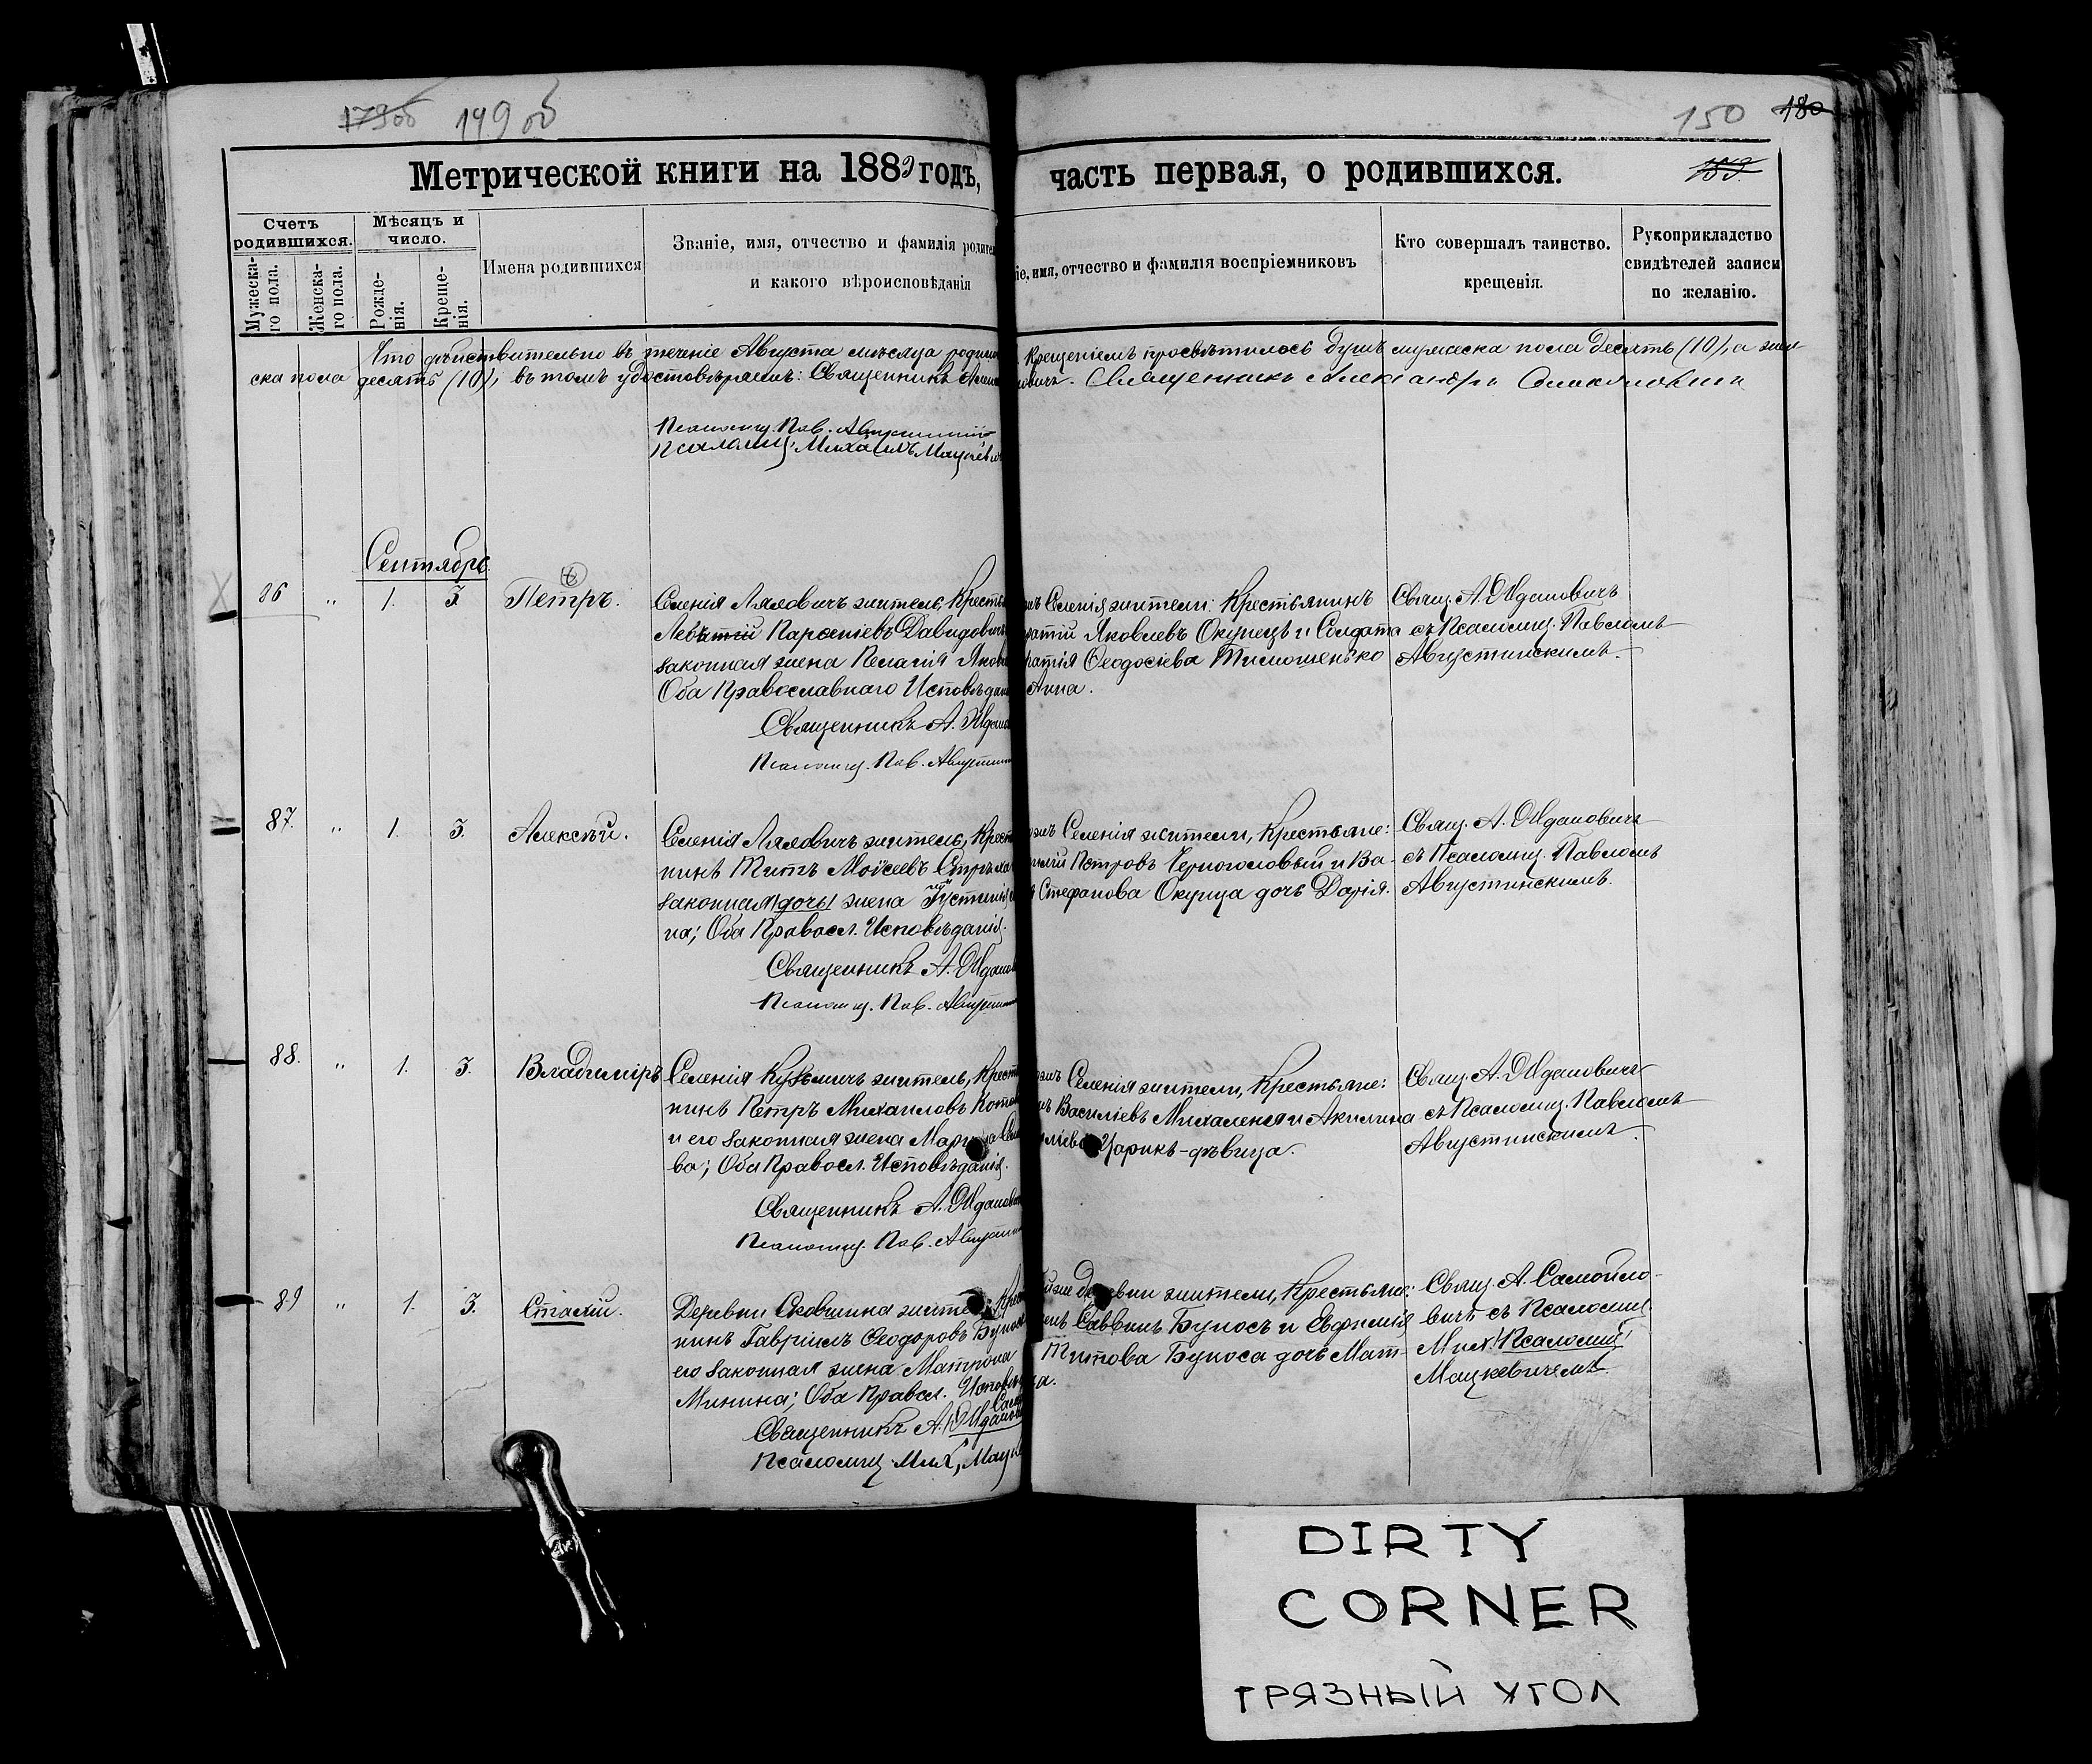 179об 149об
150 180
183.
Метрической книги на 1889 годъ, часть первая, о родившихся.
Счетъ родившихся.
Мужеска-го пола.
Женска-го пола.
Мѣсяцъ и число.
Рожде-нія.
Креще-нія.
Имена родившихся
Званіе, имя, отчество и фамилія родител
и какого вѣроисповѣданія
іе, имя, отчество и фамилія воспріемниковъ
Кто совершалъ таинство.
крещенія.
Рукоприкладство
свидѣтелей записи
по желанію.
Что дѣйствительно въ теченіе Августа мѣсяца родило Крещеніемъ просвѣтилось душъ мужеска пола десять (10), а жен
ска пола десять (10); въ томъ удостовѣряемъ: Священникъ новичъ. Священникъ Александръ
Псаломщ. Пав. Августинскій
Псаломщ. Михаилъ Мацкеви
Сентябрь.
86 " 1. 3. Петръ.
Селенія Ляховичъ житель, Крестья
Парѳеніевъ Давидович
законная жена Пелагія Яков
Оба Православнаго Исповѣдан
Священникъ А. Жданов
Псаломщ. Пав. Августин
Селенія жители: Крестьянинъ
Яковлевъ Окунецъ и Солдата
Ѳеодосіева Тимошенько
Анна.
Свящ. А. Ждановичъ
съ Псаломщ. Павломъ
Августинскимъ.
87. " 1. 3. Алексѣй.
Селенія Ляховичъ житель, Крестья
нинъ Титъ Моѵсеевъ Стрѣха
законная (дочь) жена Іустинія
на; Оба Правосл. Исповѣданія.
Священникъ А. Жданов
Псаломщ. Пав. Августин
Селенія жители, Крестьяне:
Петровъ Черноголовый и Ва-
Стефанова Окунца дочь Дарія.
Свящ. А. Ждановичъ
съ Псаломщ. Павломъ
Августинскимъ.
88. " 1. 3. Владиміръ
Селенія Кузьмичъ житель, Крестья
нинъ Петръ Михаиловъ Кото
и его законная жена Мар
ва; Оба Правосл. Исповѣданія.
Священникъ А. Жданов
Псаломщ. Пав. Августин
Селенія жители, Крестьяне:
Василіевъ Михаленя и Акилина
Царикъ-дѣвица.
Свящ. А. Ждановичъ
съ Псаломщ. Павломъ
Августинскимъ.
89 " 1. 3. Стахій.
Деревни Сковшина жите Крес
нинъ Гавріилъ Ѳеодоровъ Бунос
его законная жена Матрона
Минина; Оба Правсл. Исповѣ
Священникъ А. (Жданов
Псаломщ. Мих. Мацк
жители, Крестьяне:
Саввинъ Буносъ и Евфимія
Титова Буноса дочь Мат-
на.
Свящ. А. Самойло-
вичъ съ Псаломщ.
Мих. (Псаломщ)
Мацкевичемъ.
DIRTY
CORNER
ГРЯЗНЫЙ УГОЛ